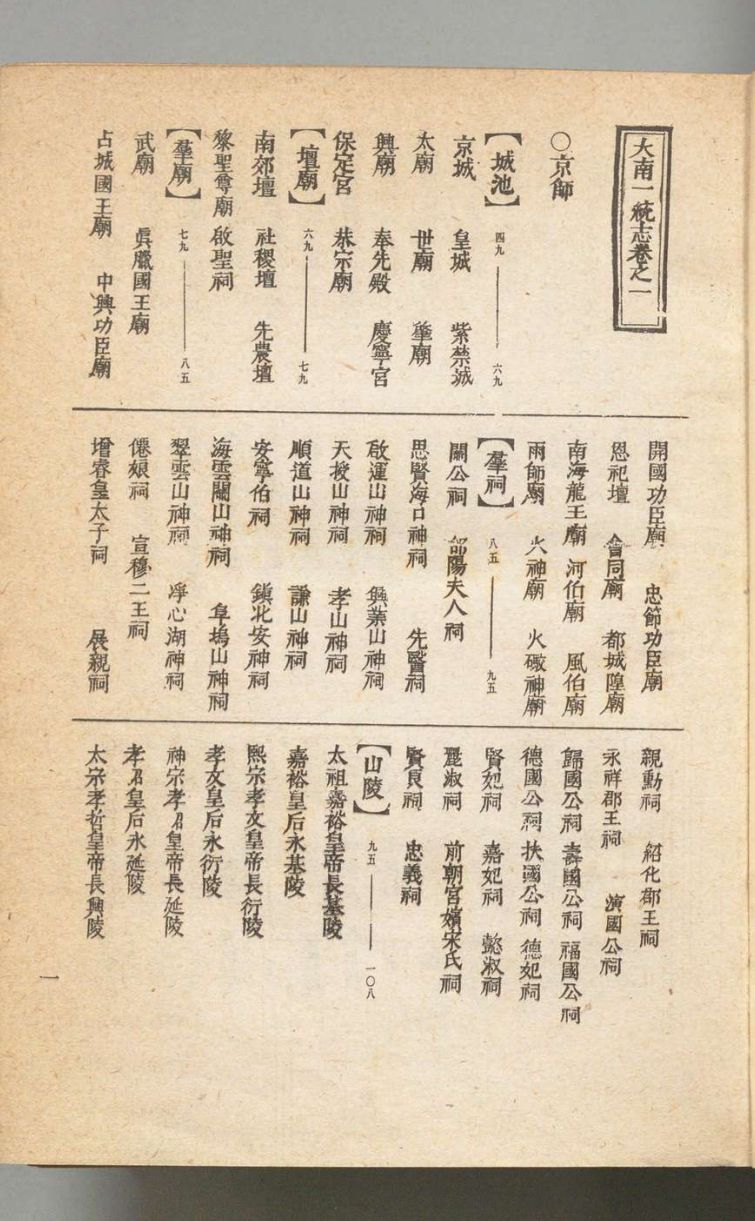 大南一統志卷之一
○京師
【城池】 四九——六九
京城 皇城 紫禁城
太廟 世廟 肇廟
興廟 奉先殿 慶寧宮
保定宮 恭宗廟
【壇廟】 六九——七九
南郊壇 社稷壇 先農壇
黎聖尊廟 啟聖祠
【羣廟】 七九——八五
武廟 眞臘國王廟
占城國王廟 中興功臣廟
開國功臣廟 忠節功臣廟
恩祀壇 會同廟 都城隍廟
南海龍王廟 河伯廟 風伯廟
雨師廟 火神廟 火礮神廟
【羣祠】 八五——九五
關公祠 邰陽夫人祠
思賢海口神祠 先醫祠
啟運山神祠 興業山神祠
天授山神祠 孝山神祠
順道山神祠 謙山神祠
安寧伯祠 鎭北安神祠
海雲關山神祠 阜塢山神祠
翠雲山神祠 凈心湖神祠
僊娘祠 宣穆二王祠
增睿皇太子祠 展親祠
親勳祠 紹化郡王祠
永祥郡王祠 演國公祠
歸國公祠 壽國公祠 福國公祠
德國公祠 扶國公祠 德妃祠
賢妃祠 嘉妃祠 懿淑祠
麗淑祠 前朝宮嬪宋氏祠
賢良祠 忠義祠
【山陵】 九五——一〇八
太祖嘉裕皇帝長基陵
嘉裕皇后永基陵
熙宗孝文皇帝長衍陵
孝文皇后永衍陵
神宗孝昭皇帝長延陵
孝昭皇后永延陵
太宗孝哲皇帝長興陵
一